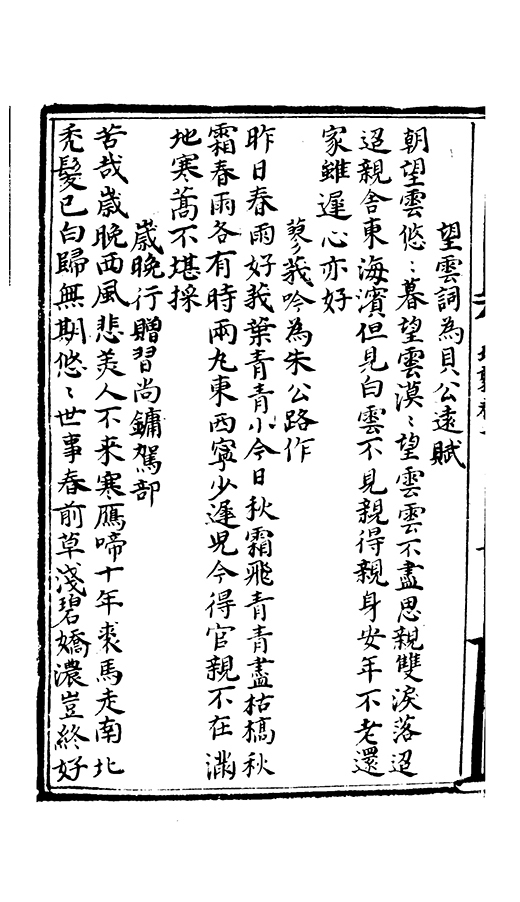 望雲詞為貝公遠賦
朝望雲悠〻暮望雲漠〻望雲雲不盡思親雙淚落迢
迢親舍東海濱但見白雲不見親得親身安年不老還
家雖遲心亦好
蓼莪吟為朱公路作
昨日春雨好莪葉青青小今日秋霜飛青青盡枯槁秋
霜春雨各有時兩丸東西寧少遲児今得官親不在滿
地寒蒿不堪採
歲晚行贈習尚鏞駕部
苦哉歲晚西風悲美人不来寒鴈啼十年裘馬走南北
禿髮已白歸無期悠〻世事春前草淺碧嬌濃豈終好